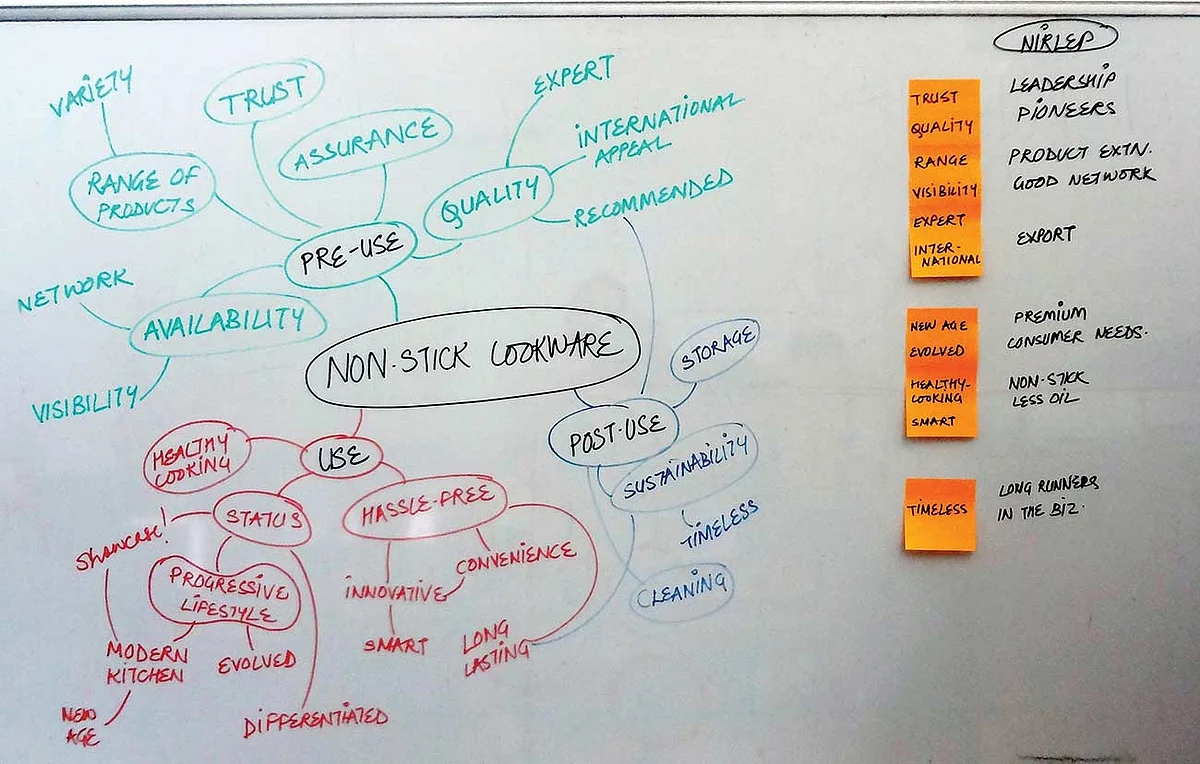 VARIETY
TRUST
ASSURANCE
EXPERT
INTERNATIONAL
APPEAL
RANGE OF
PRODUCTS
QUALITY
RECOMMENDED
PRE-USE
NETWORK
AVAILABILITY
VISIBILITY
NON-STICK COOKWARE
STORAGE
POST-USE
SUSTAINABILITY
TIMELESS
CLEANING
USE
HEALTHY
COOKING
STATUS
HASSLE-FREE
Showcase!
PROGRESSIVE
LIFESTYLE
CONVENIENCE
INNOVATIVE
SMART
LONG
LASTING
MODERN
KITCHEN
EVOLVED
NEW
AGE
DIFFERENTIATED
NIRLEP
TRUST
QUALITY
RANGE
VISIBILITY
EXPERT
INTER-
NATIONAL
LEADERSHIP
PIONEERS
PRODUCT EXTN.
GOOD NETWORK
EXPORT
NEW AGE
EVOLVED
HEALTHY-
COOKING
SMART
PREMIUM
CONSUMER NEEDS.
NON-STICK
LESS OIL
TIMELESS
LONG RUNNERS
IN THE BIZ.